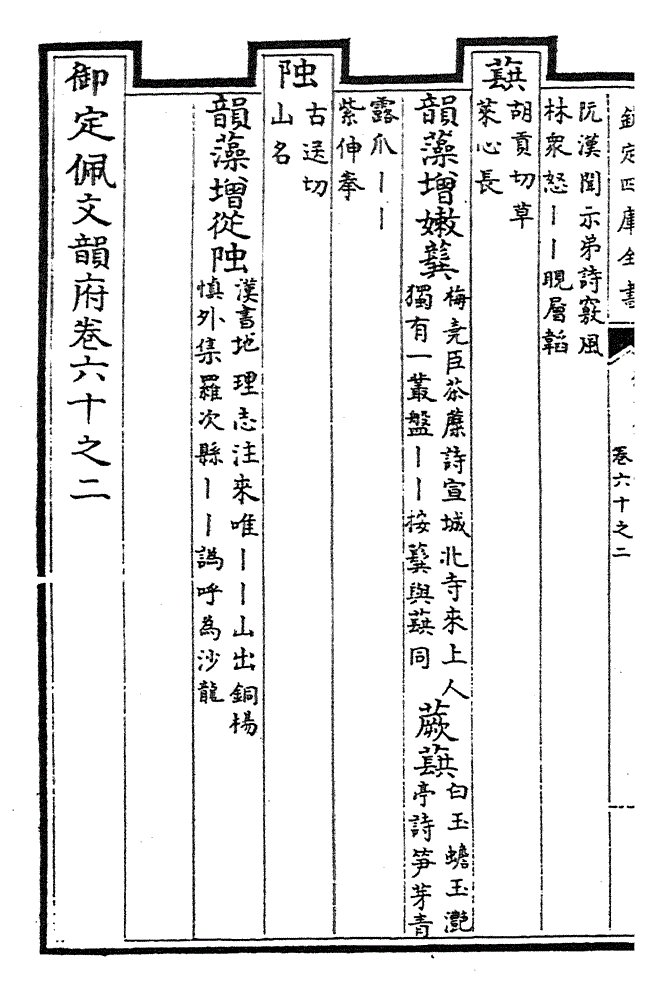 欽定四庫全書 卷六十之二
阮漢聞示弟詩竅風
林衆怒丨丨睍層韜
蕻
胡貢切草
菜心長
韻藻增嫩
梅堯臣荼蘪詩宣城北寺來上人
獨有一叢盤丨丨按與蕻同
蕨蕻
白玉蟾玉灔
亭詩笋芽青
露爪丨丨
紫伸拳
古送切
山名
韻藻增從
漢書地理志注來唯丨丨山出銅楊
慎外集羅次縣丨丨譌呼為沙龍
御定佩文韻府卷六十之二